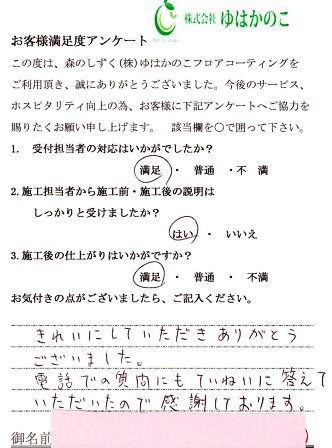 株式会社 ゆはかのこ
お客様満足度アンケート
この度は、森のしずく(株)ゆはかのこフロアコーティングを
ご利用頂き、誠にありがとうございました。今後のサービス、
ホスピタリティ向上の為、お客様に下記アンケートへご協力を
賜りたくお願い申し上げます。 該当欄を〇で囲って下さい。
1. 受付担当者の対応はいかがでしたか?
満足 ・ 普通 ・不 満
2.施工担当者から施工前・施工後の説明は
しっかりと受けましたか?
はい ・ いいえ
3.施工後の仕上がりはいかがですか?
満足 ・ 普通 ・ 不満
お気付きの点がございましたら、ご記入ください。
きれいにしていただきありがとう
ございました。
電話での質問にもていねいに答えて
いただいたので感謝しております。
御名前